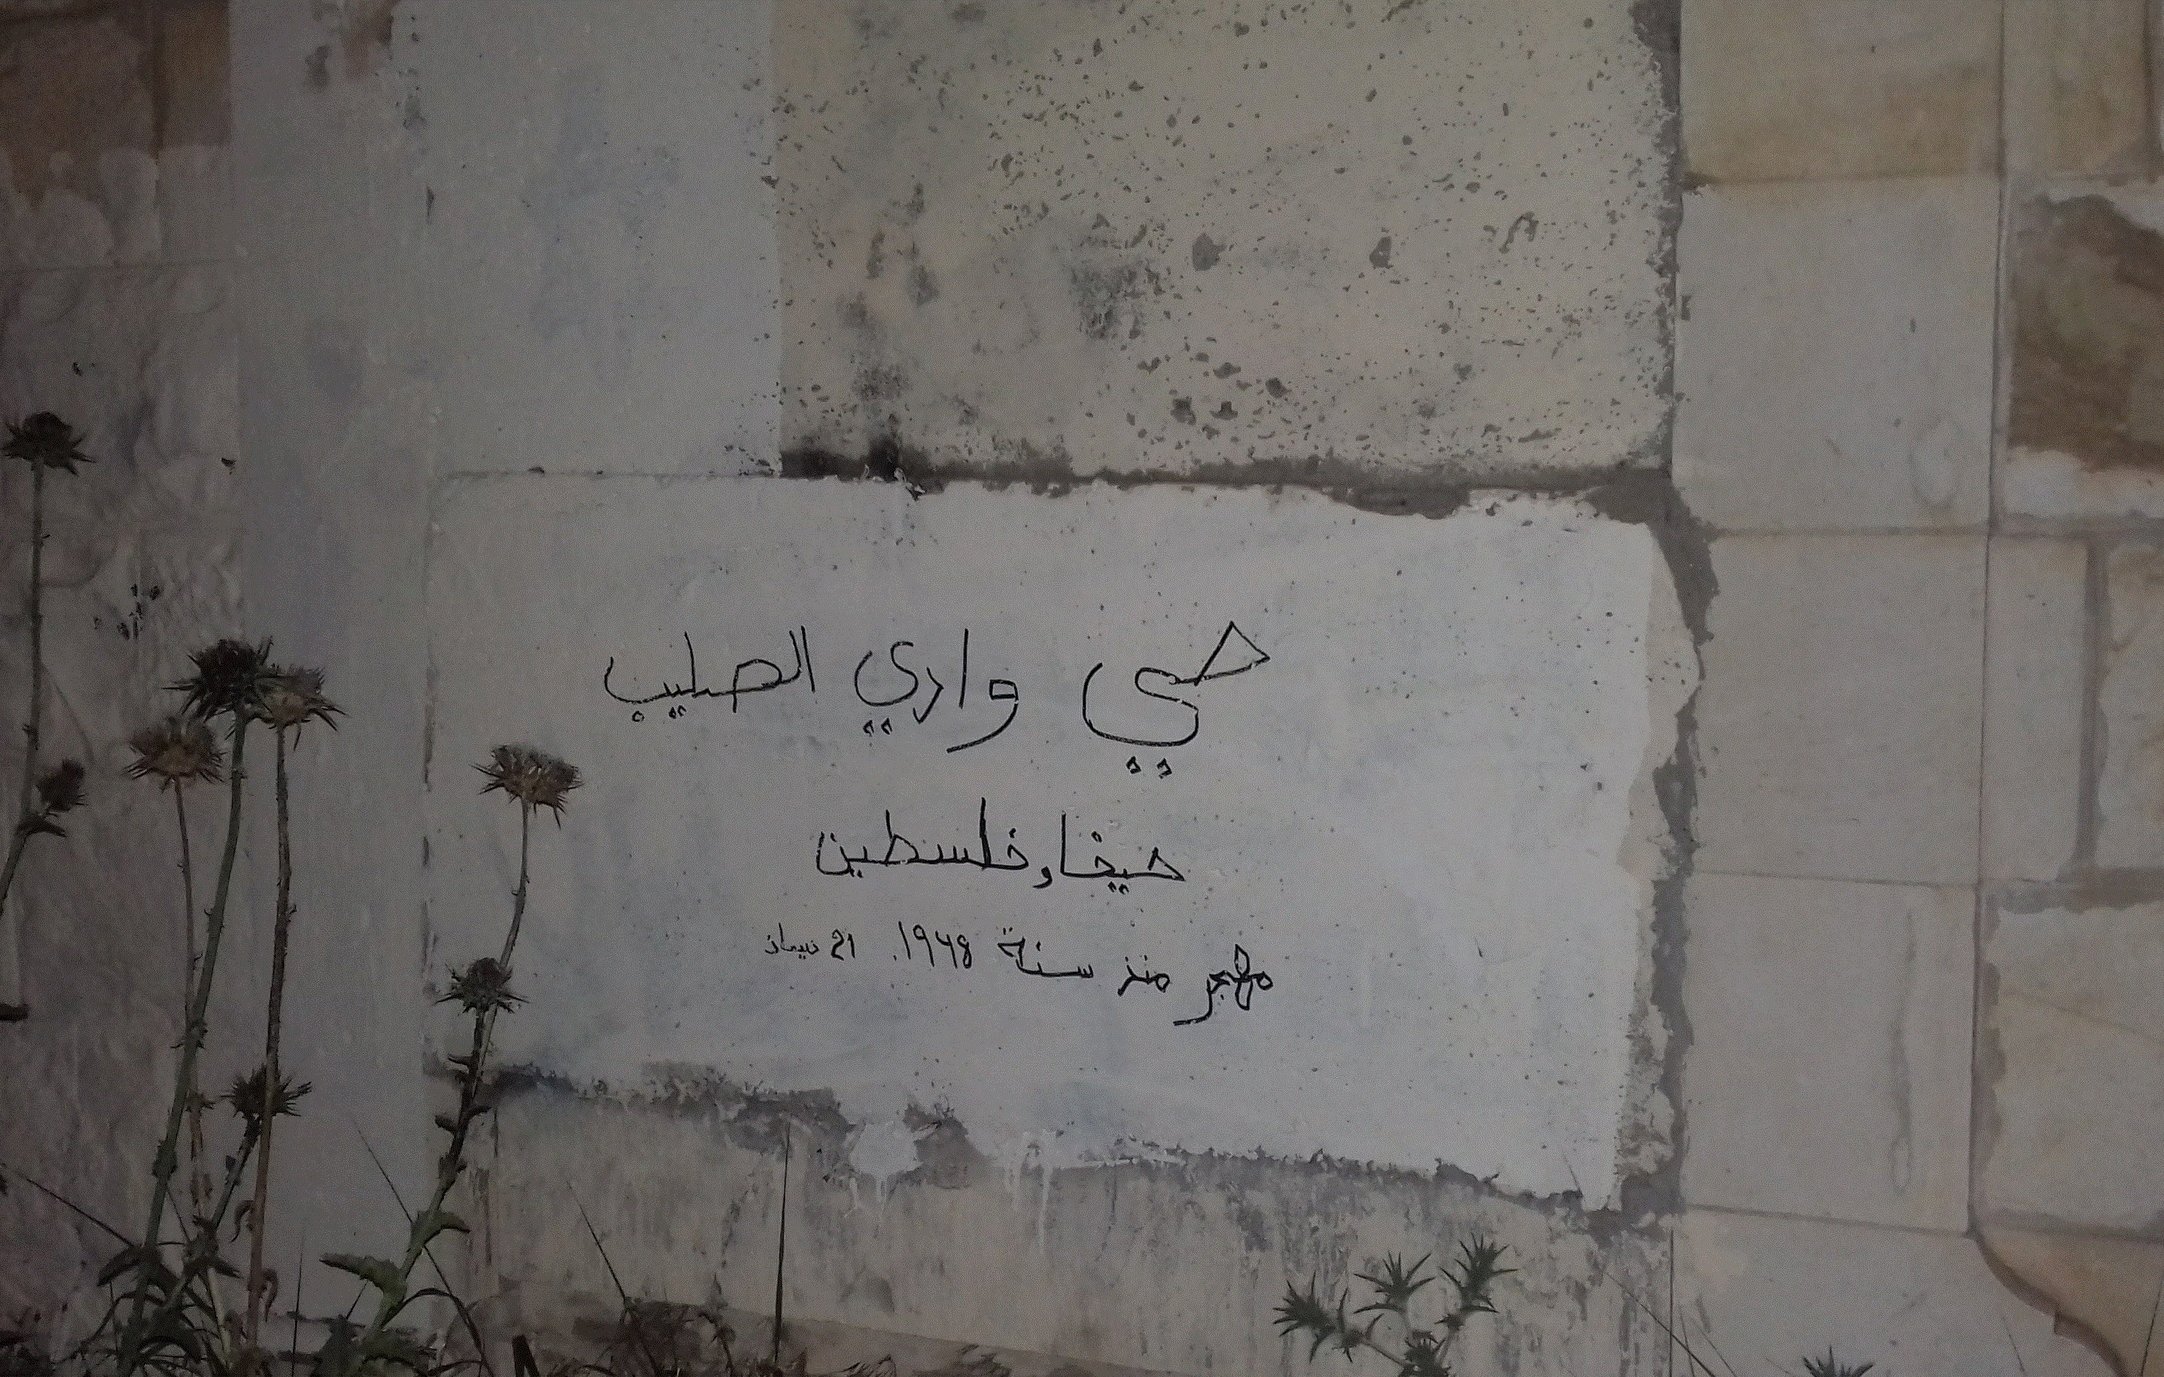 حي وادي الصليب
حيفا، فلسطين
مهجر منذ سنة ١٩٤٨. 21 نيسان